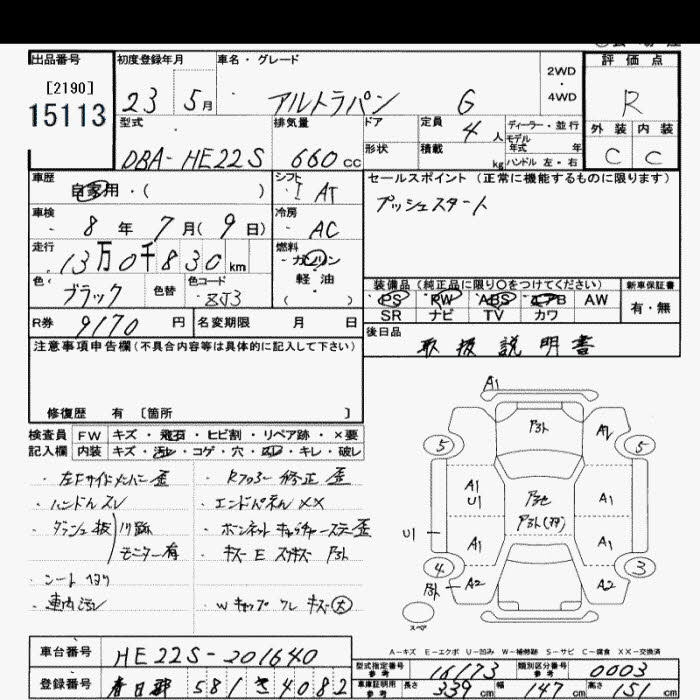 出品番号
[2190]
15113
初度登録年月
23 5月
車名・グレード
アルトラパン G
2WD
4WD
評価点
R
外装 内装
C C
型式
DBA-HE22S
排気量
660cc
ドア
形状
定員
4人
積載
kg
ディーラー・並行
モデル
年式 年
ハンドル 左・右
車歴
自家用・( )
シフト
I AT
セールスポイント(正常に機能するものに限ります)
プッシュスタート
車検
8年 7月(9日)
冷房
AC
走行
13万0千830km
燃料
ガソリン
軽油
( )
色
ブラック
色替
色コード
ZJ3
装備品(純正品に限り○をつけてください)
PS PW ABS エアB AW
SR ナビ TV カワ
新車保証書
有・無
R券 9170円
名変期限 月 日
後日品
取扱説明書
注意事項申告欄(不具合内容等は具体的に記入して下さい)
修復歴 有 〔箇所 〕
検査員 FW キズ・飛石・ヒビ割・リペア跡・×要
記入欄 内装 キズ・汚レ・コゲ・穴・スレ・キレ・破レ
・左Fサイドメンバー歪
・ハンドルスレ
・ダッシュ板 穴跡
モニター有
・シートヨゴレ
・車内汚レ
・Rフロアー修正歪
・エンドパネルXX
・ボンネットキャッチャーステー歪
・キズ E スリキズ
・Wキャップ ワレ キズ大
A1
5
5
A2
A1
U1
A1
U1
A1
A1
4
3
A2
A2
スペア
A-キズ E-エクボ U-凹み W-補修跡 S-サビ C-腐食 XX-交換済
車台番号 HE22S-201640
登録番号 春日部 581 さ 4082
型式指定番号
参考
16173
類別区分番号
参考
0003
車庫証明用
参考
長さ 339cm 幅 147cm 高さ 151cm